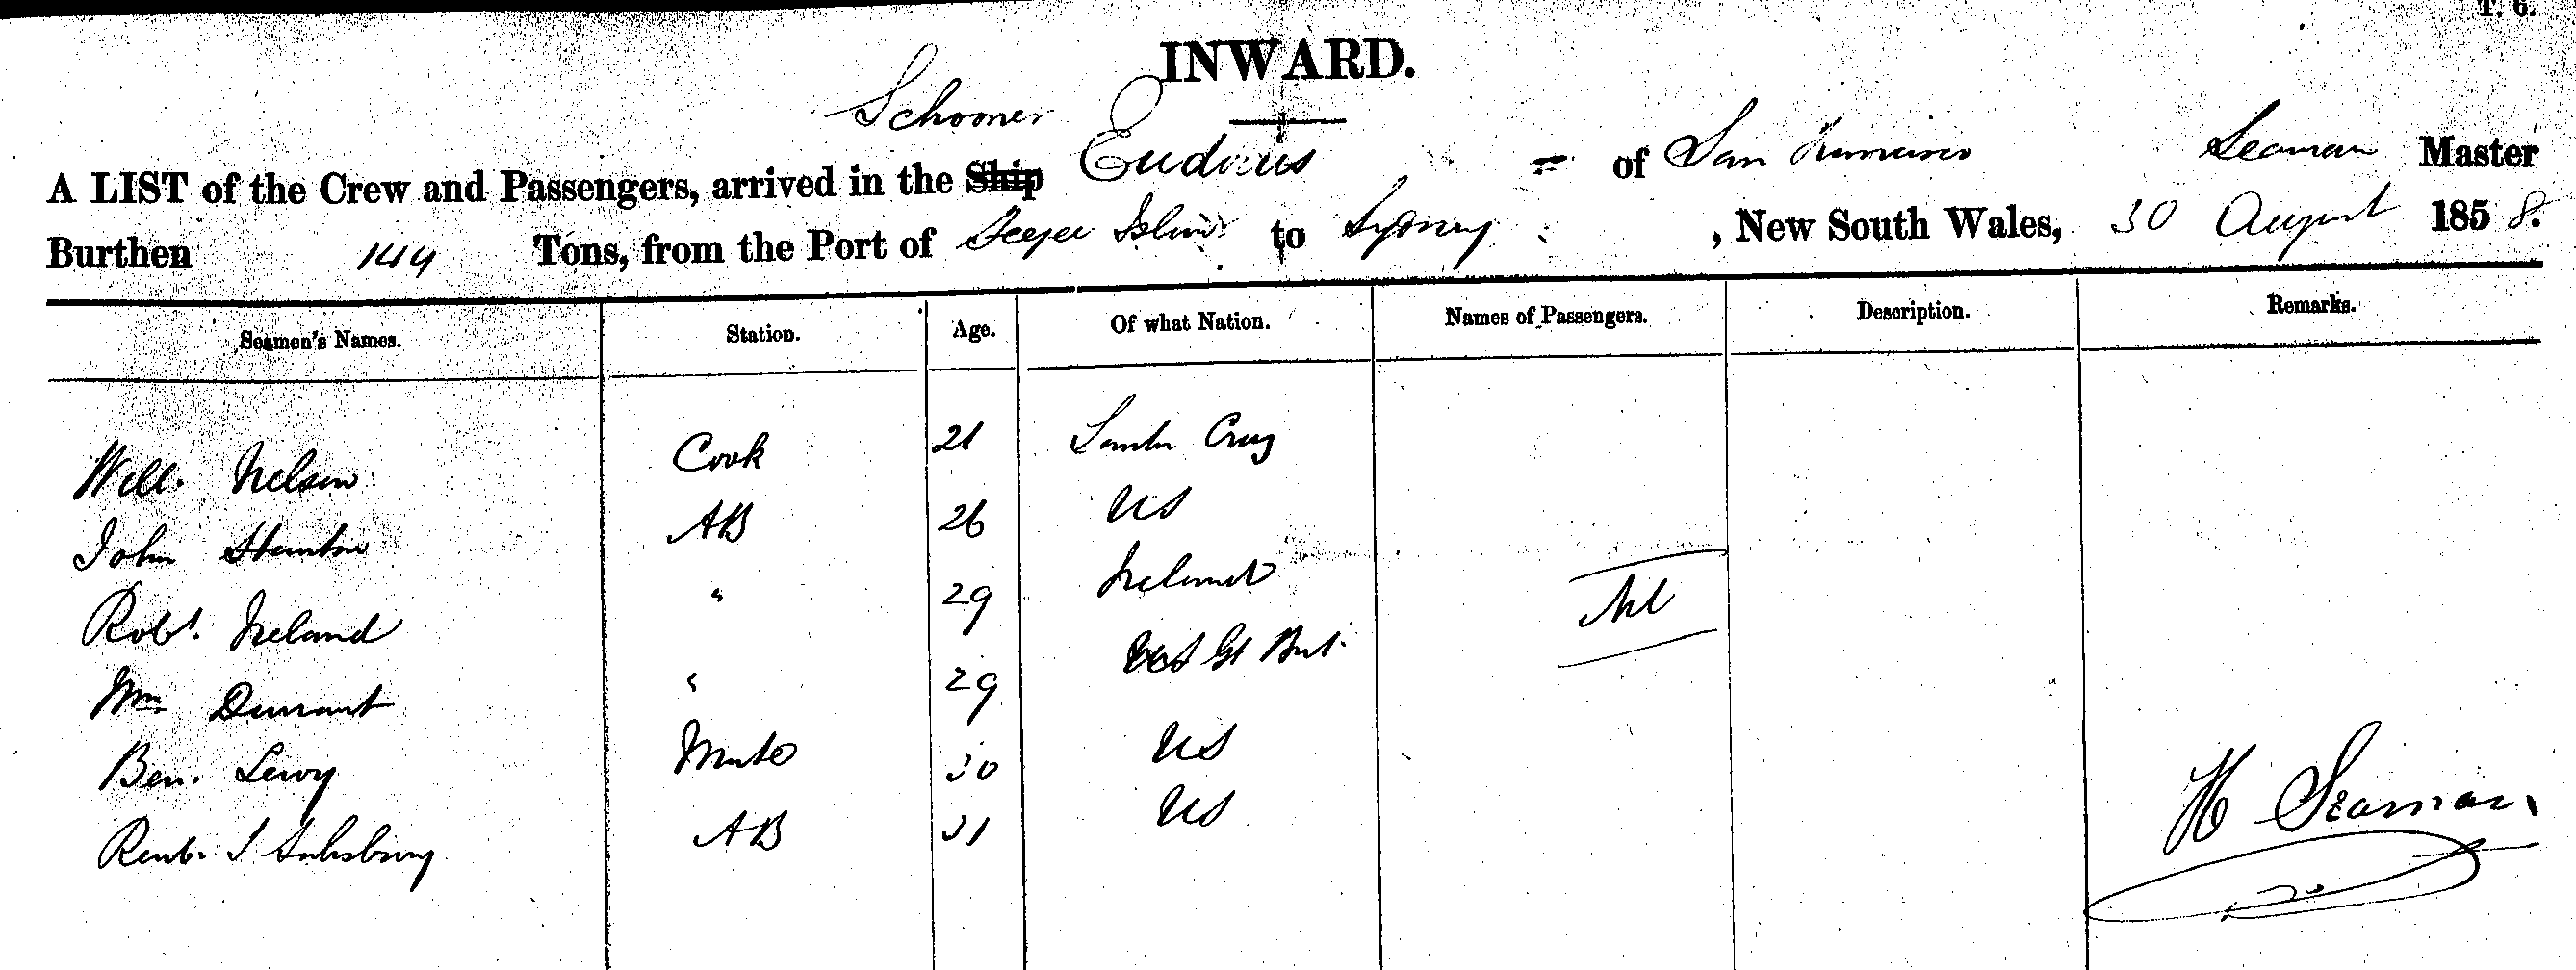 T. 6.
INWARD.
Schooner
A LIST of the Crew and Passengers, arrived in the Ship Eudorus = of San Francisco Seaman Master
Burthen 144 Tons, from the Port of Feejee Islands to Sydney , New South Wales, 30 August 1858.
Seamen's Names. Station. Age. Of what Nation. Names of Passengers. Description. Remarks.
Will. Nelson Cook 21 Santa Cruz
John AB 26 US
Robt. Ireland " 29 Ireland Nil
Wm Durrant " 29 US Gt Brit.
Ben. Levy Mate 30 US
AB 31 US
H Seaman